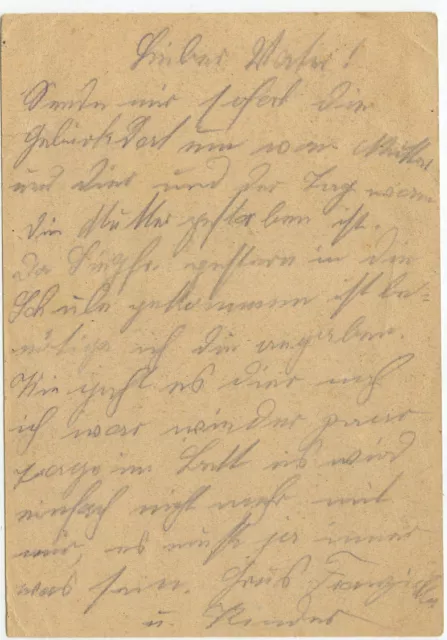 Lieber Vater!
Sende mir sofort die
Geburtsdart um von Mutter
und dier und der Tag wann
die Mutter gestorben ist.
Da gestern in die
Schule gekommen ist be-
nötige ich die angaben.
Wie geht es dier noch
ich war wieder paar
Tage im Bett es wird
einfach nicht mehr mit
mir, es muss ja immer
was sein. Grus
u. Kinder